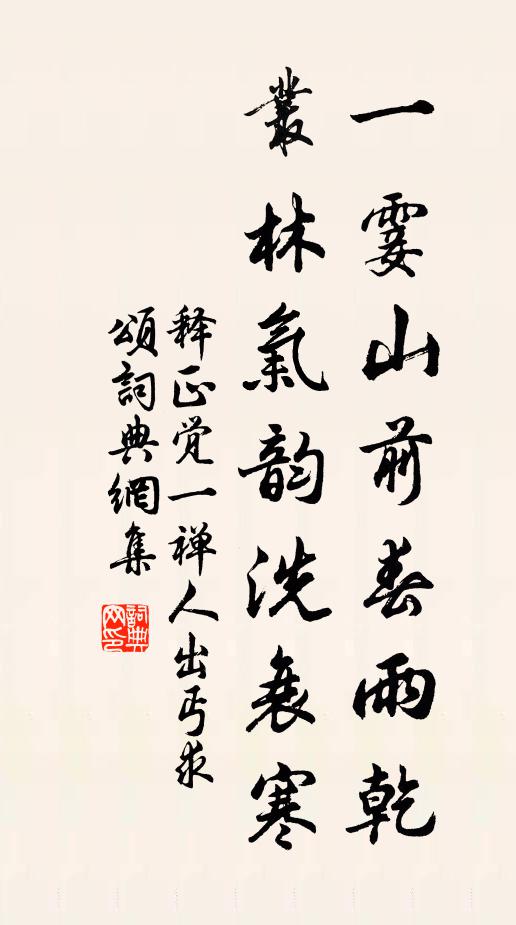 一霎山前春雨乾
叢林氣韵洗衰寒
释正覚一禅人出丐求
頌詞典網集
詞典网印